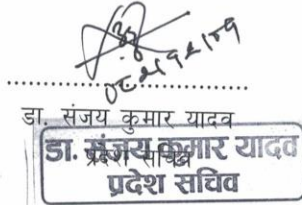 डा. संजय कुमार यादव
प्रदेश सचिव
डा. संजय कुमार यादव
प्रदेश सचिव